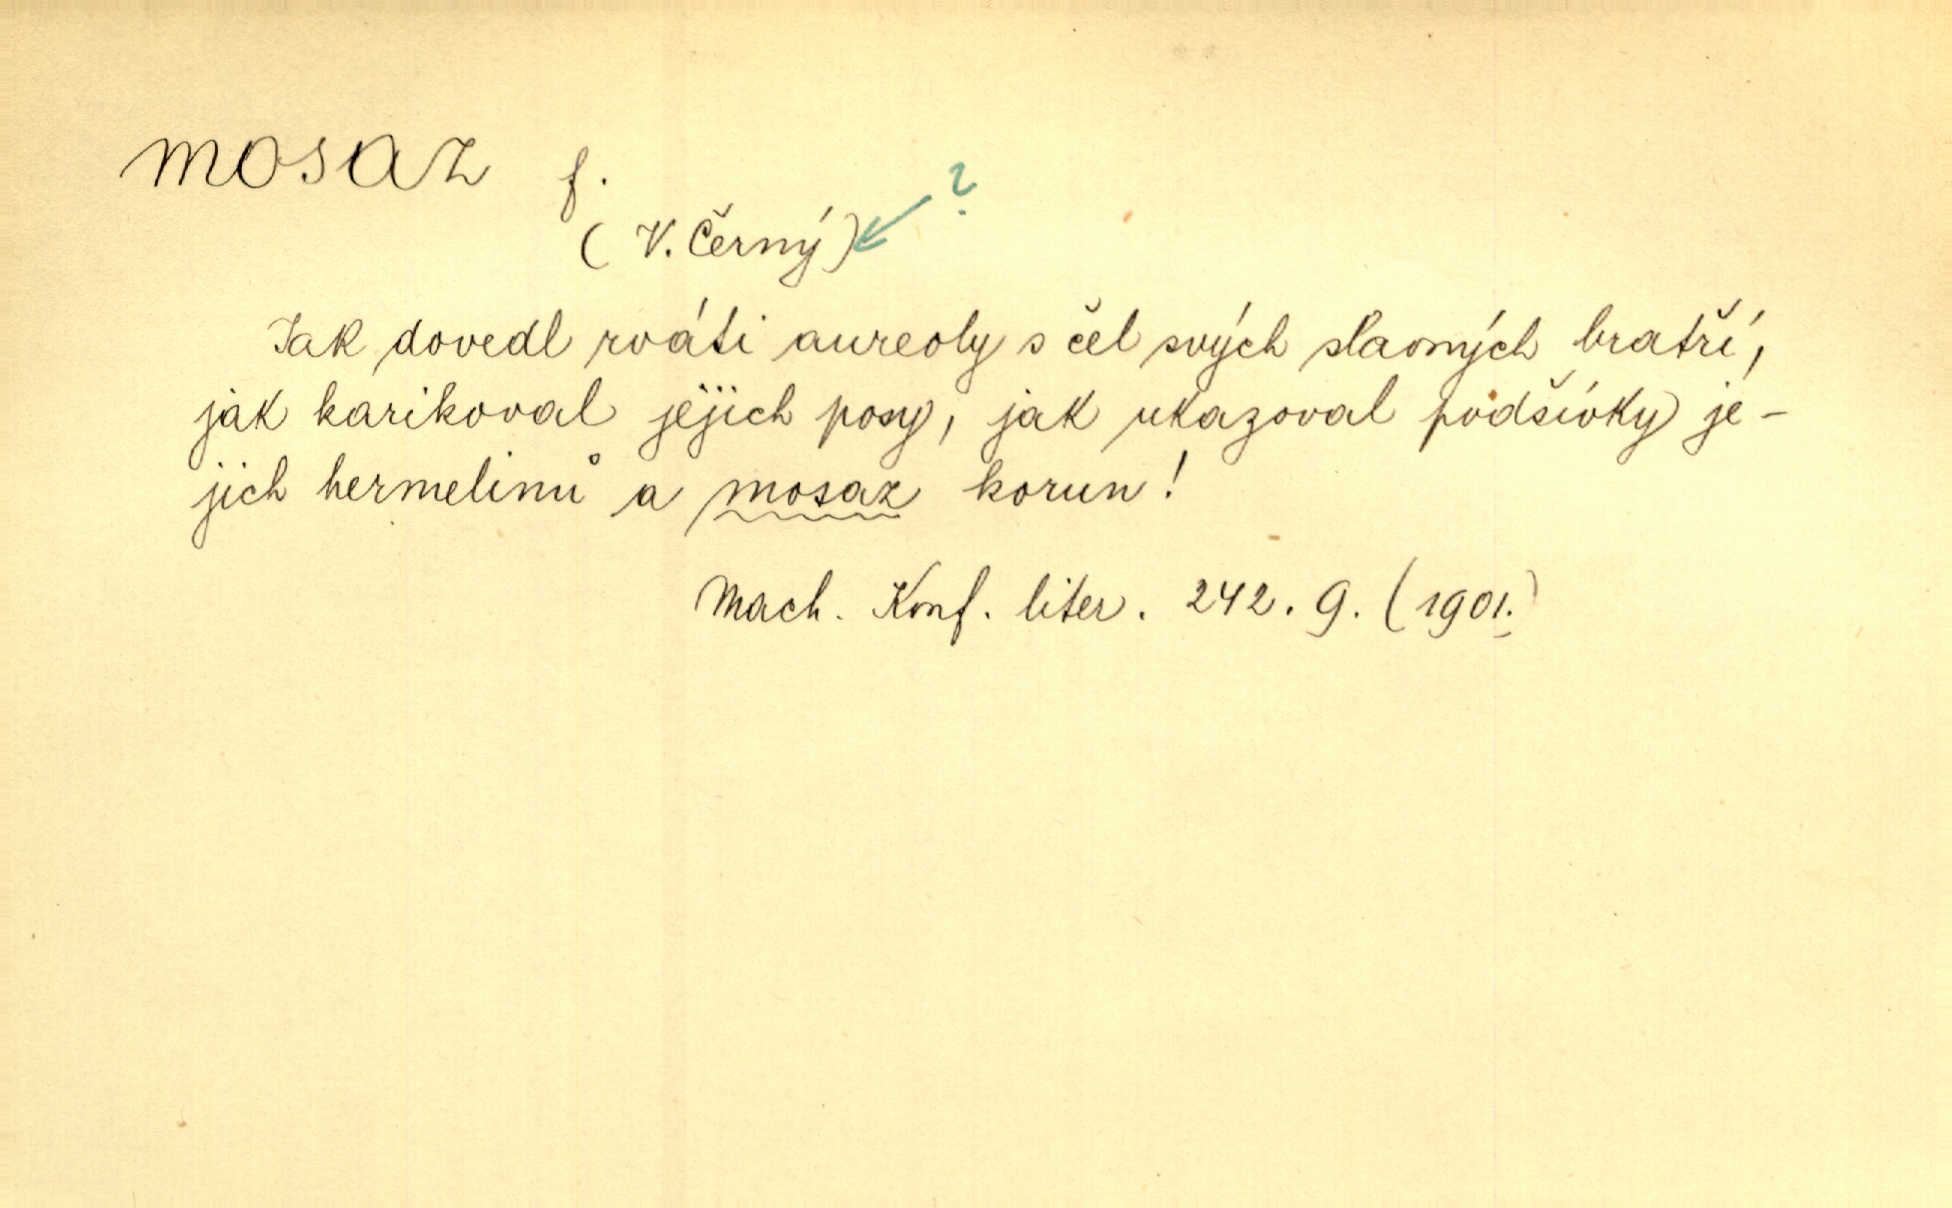 mosaz f.
?
(V. Černý)
Jak dovedl rváti aureoly s čel svých slavných bratří,
jak karikoval jejich posy, jak ukazoval podšívky je-
jich hermelinů a mosaz korun!
Mach. Konf. liter. 242. 9. (1901.)